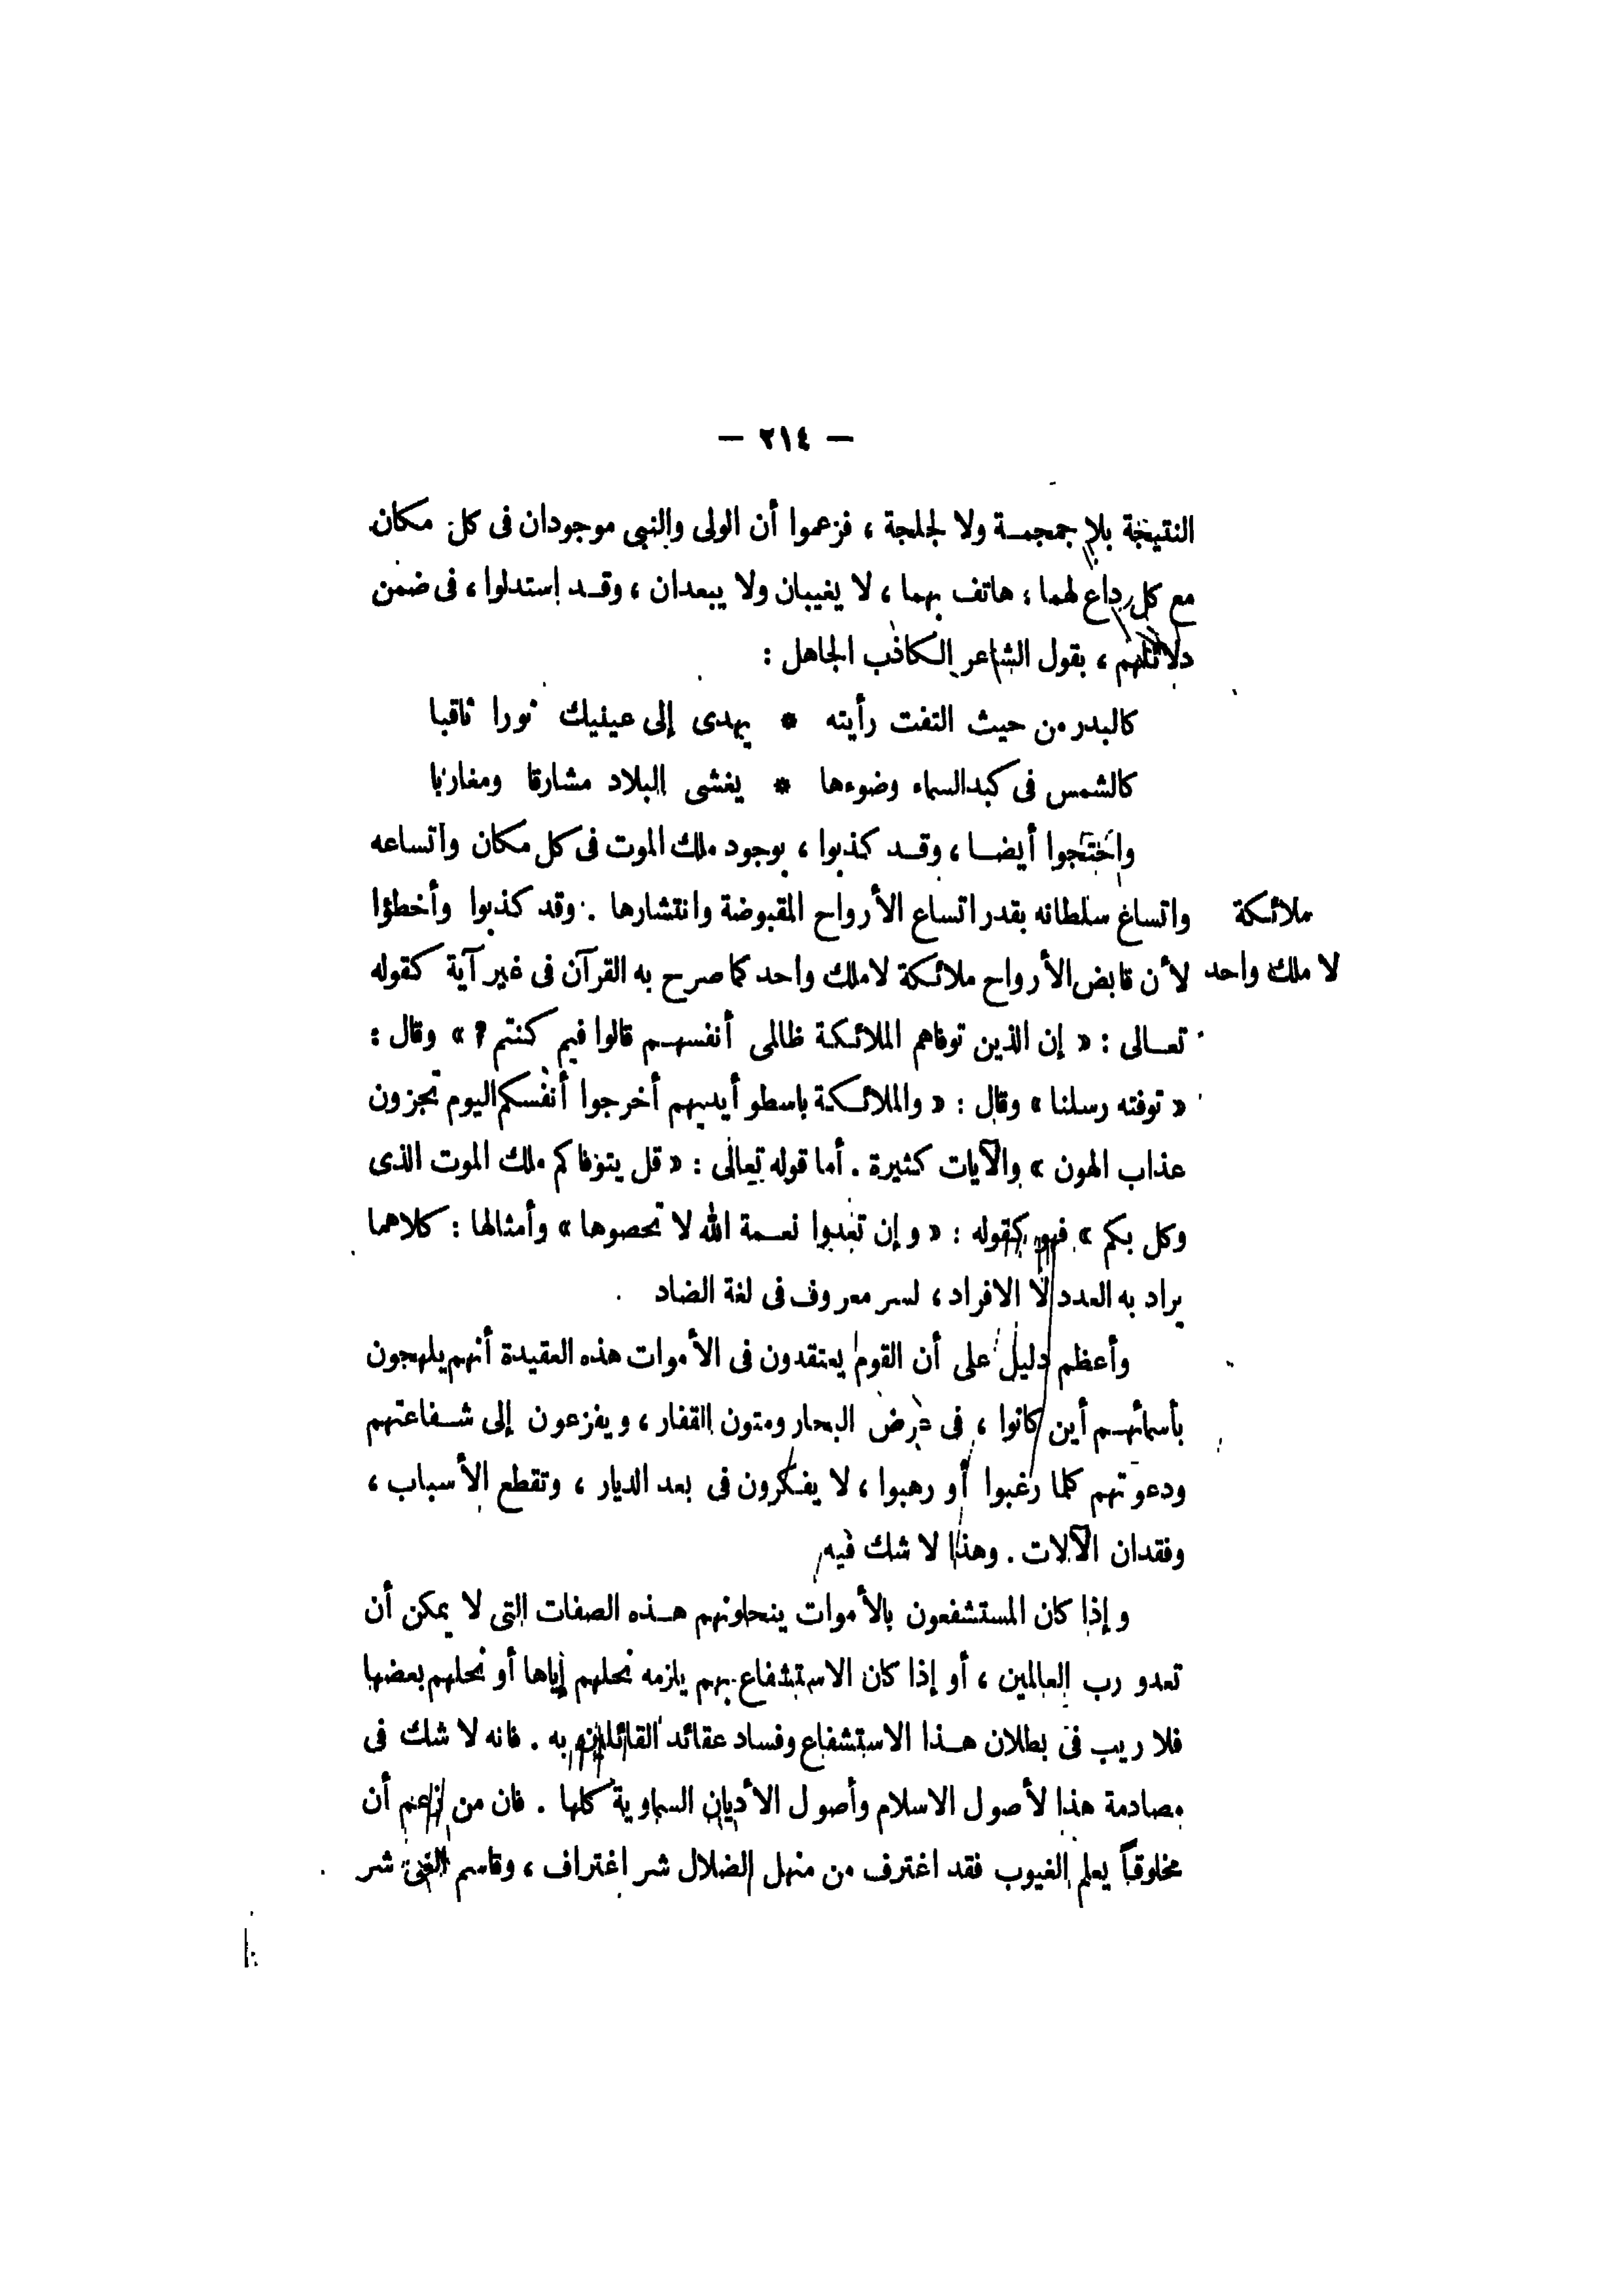 — ٢١٤ —
النتيجة بلا جمجمـة ولا لجلجة ، فزعموا أن الولى والنبى موجودان فى كل مكان
مع كل داع لهما ؛ هاتف بهما ، لا يغيبان ولا يبعدان ، وقـد إستدلوا ، فى ضمن
دلائلهم ، بقول الشاعر الكاذب الجاهل :
كالبدر من حيث التفت رأيته * يهدى إلى عينيك نورا ثاقبا
كالشمس فى كبد السماء وضوءها * يغشى البلاد مشارقا ومغاربا
واحتجوا أيضـا ، وقـد كذبوا ، بوجود ملك الموت فى كل مكان واتساعه
واتساع سلطانه بقدر اتساع الأرواح المقبوضة وانتشارها . وقد كذبوا وأخطؤا
ملائكة
لأن قابض الأرواح ملائكة لا ملك واحد كما صرح به القرآن فى غير آية كقوله
لا ملك واحد
تعـالى : « إن الذين توفاهم الملائكة ظالمى أنفسهـم قالوا فيم كنتم ؟ » وقال :
« توفته رسلنا » وقال : « والملائـكة باسطو أيديهم أخرجوا أنفسكم اليوم تجزون
عذاب الهون » والآيات كثيرة . أما قوله تعالى : « قل يتوفاكم ملك الموت الذى
وكل بكم » فهو كقوله : « وإن تعدوا نعـمة الله لا تحصوها » وأمثالها : كلاهما
يراد به العدد لا الافراد ، لسر معروف فى لغة الضاد
وأعظم دليل على أن القوم يعتقدون فى الأموات هذه العقيدة أنهم يلهجون
بأسمائهـم أين كانوا ، فى عرض البحار ومتون القفار ، ويفزعون إلى شـفاعتهم
ودعوتهم كلما رغبوا أو رهبوا ، لا يفكرون فى بعد الديار ، وتقطع الأسباب ،
وفقدان الآلات . وهذا لا شك فيه
وإذا كان المستشفعون بالأموات ينحلونهم هـذه الصفات التى لا يمكن أن
تعدو رب العالمين ، أو إذا كان الاستشفاع بهم يلزمه نحلهم إياها أو نحلهم بعضها
فلا ريب فى بطلان هـذا الاستشفاع وفساد عقائد القائلين به . فانه لا شك فى
مصادمة هذا لأصول الاسلام وأصول الأديان السماوية كلها . فان من زعم أن
مخلوقاً يعلم الغيوب فقد اغترف من منهل الضلال شر اغتراف ، وقاسم الغى شر